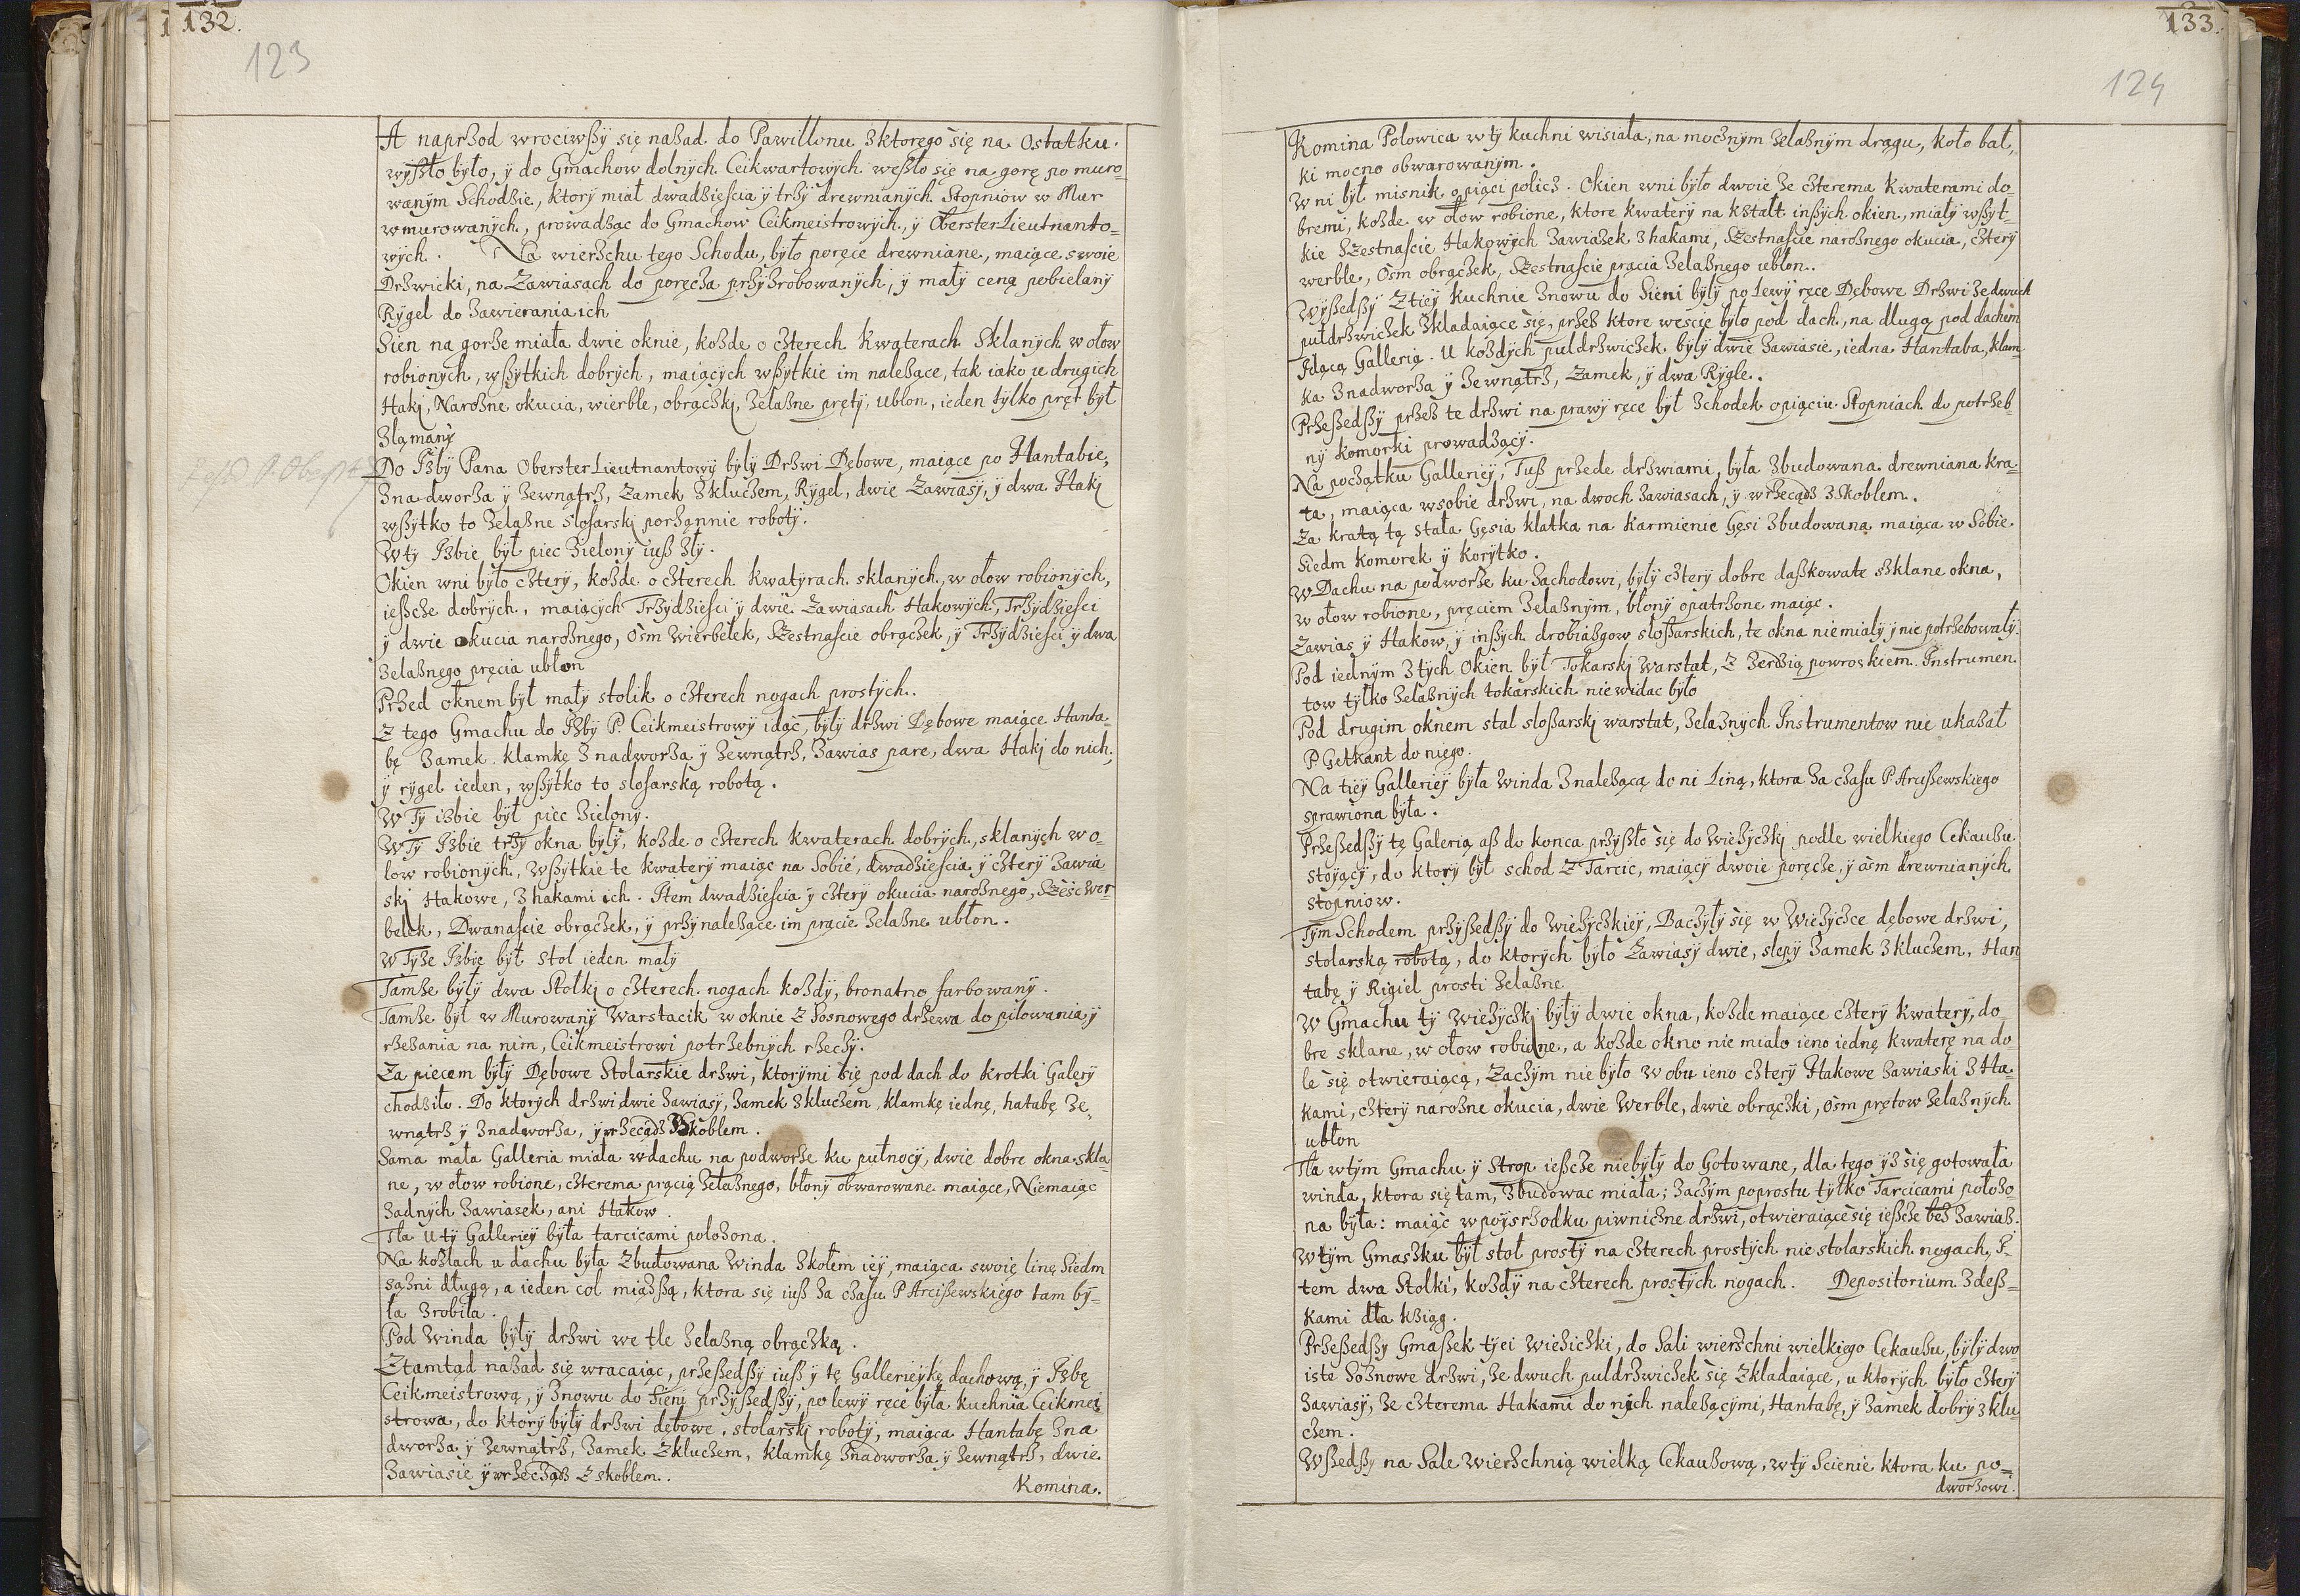 132.
123
A naprzod wrociwszÿ się nazad do Pawillonu z ktorego się na ostatku.
wÿszło bÿło, ÿ do Gmachow dolnÿch Ceikwartowÿch weszło się na gorę po muro-
wanÿm Schodzie, ktorÿ miał dwadziescia ÿ trzÿ drewnianÿch Stopniow w Mur
wmurowanÿch, prowadząc do Gmachow Ceikmeistrowÿch, ÿ ObersterLieutnanto=
wÿch. Na wierzchu tego Schodu, bÿło poręce drewniane, maiące swoie
Drzwicki, na Zawiasach do poręcza przÿszrobowanÿch, ÿ małÿ ceną pobielanÿ
Rÿgel do zawierania ich
Sien na gorze miała dwie oknie, kozde o czterech Kwaterach Sklanÿch w ołow
robionÿch, wszÿtkich dobrÿch, maiącÿch wszÿtkie im nalezące, tak iako u drugich
Haki, Narozne okucia, wierble, obrączki, zelazne prętÿ, ublon, ieden tÿlko pręt bÿł
złąmanÿ
Do Izbÿ Pana ObersterLieutnantowÿ bÿlÿ Drzwi Dębowe, maiące po Hantabie,
zna dworza ÿ zewnątrz, Zamek z kluczem, Rÿgel, dwie Zawiasÿ, ÿ dwa Haki
wszÿtko to zelazne slosarski porządnie robotÿ.
W tÿ Izbie bÿł piec zielonÿ iusz złÿ.
Okien w ni bÿło czterÿ, kozde o czterech kwatÿrach sklanÿch, w ołow robionÿch,
ieszcze dobrÿch, maiącÿch Trzÿdziesci ÿ dwie Zawiasach Hakowÿch, Trzÿdziesci
ÿ dwie okucia naroznego, osm wierbelek, Szestnascie obrączek, ÿ Trzÿdziesci ÿ dwa
zelaznego pręcia ubłon
Przed oknem bÿł małÿ stolik o czterech nogach prostÿch.
Z tego Gmachu do Izbÿ P. Ceikmeistrowÿ idąc, bÿlÿ drzwi Dębowe maiące Hanta-
bę Zamek, klamkę z nadworza ÿ zewnątrz, Zawias pare, dwa Haki do nich,
ÿ rÿgel ieden, wszÿtko to slosarską robotą.
W Tÿ izbie bÿł piec zielonÿ.
W Tÿ Izbie trzÿ okna bÿlÿ, kozde o czterech kwaterach dobrÿch, sklanÿch w o-
low robionÿch, wszÿtkie te kwaterÿ maiąc na sobie, dwadziescia ÿ czterÿ zawia
ski Hakowe, z hakami ich. Item dwadziescia ÿ czterÿ okucia naroznego, Sześc wer
belek, Dwanascie obrączek, ÿ przÿnalezące im pracie zelazne ubłon.
W Tÿze Izbie bÿł stol ieden małÿ
Tamze bÿłÿ dwa Stołki o czterech nogach kozdÿ, bronatno farbowanÿ.
Tamze bÿł w Murowanÿ Warstacik w oknie z Sosnowego drzewa do piłowania ÿ
rzezania na nim, Ceikmeistrowi potrzebnÿch rzeczÿ.
Za piecem bÿłÿ Dębowe Stolarskie drzwi, ktorÿmi się pod dach do krotki Galerÿ
chodziło. Do ktorÿch drzwi dwie zawiasÿ, zamek z kluczem, klamkę iednę, hatabę ze,
wnątrz ÿ z nadworza, ÿ wrzecądz z Skoblem.
Sama mała Galleria miała w dachu na podworze ku pułnocÿ, dwie dobre okna skla-
ne, w ołow robione, czterema prącią zelaznego, błonÿ obwarowane maiące, Niemaiąc
zadnÿch zawiasek, ani Hakow.
Tła u tÿ Gallerieÿ bÿła tarcicami polozona.
Na kozłach u dachu bÿła zbudowana Winda z kołem ieÿ, maiąca swoię linę Siedm
sązni długą, a ieden col miązszą, ktora się iusz za czasu P Arciszewskiego tam bÿ=
ła zrobiła.
Pod Winda bÿłÿ drzwi we tle zelazną obrączką.
Ztamtad nazad się wracaiąc, przeszedszÿ iusz ÿ tę Gallerieÿkę dachową, ÿ Izbę
Ceikmeistrową, ÿ znowu do Sieni przÿszedszÿ, po lewÿ ręce bÿła kuchnia Ceikmei
strowa, do ktorÿ bÿłÿ drzwi dębowe, stolarski robotÿ, maiąca Hantabę zna
dworza ÿ zewnątrz, Zamek z kluczem, klamkę znadworza ÿ zewnątrz, dwie
zawiasie ÿ wrzecządz z skoblem.
Komina.
133.
124
Komina Polowica w tÿ kuchni wisiała, na mocznÿm zelaznÿm drągu, koło bal,
ki mocno obwarowanÿm.
W ni bÿł misnik o piąci policz. Okien w ni bÿło dwoie ze czterema kwaterami do
bremi, kozde w ołow robione, ktore kwaterÿ na kztałt inszÿch okien, miałÿ wszÿt_
kie Szestnascie Hakowÿch zawiazek z hakami, Szestnascie naroznego okucia, czterÿ
werble, Osm obrączek, Szestnascie prącia zelaznego ublon.
Wÿszedszÿ z tieÿ kuchnie znowu do Sieni bÿłÿ po Lewÿ ręce Dębowe Drzwi ze dwuch
puldrzwiczek zkladaiące się, przez ktore wescie bÿło pod dach, na dlugą pod dachem
Idącą Gallerią. U kozdÿch puldrzwiczek bÿlÿ dwie zawiasie, iedna Hantaba, klam
ka z nadworza ÿ zewnątrz, Zamek, ÿ dwa Rÿgle.
Przeszedszÿ przez te drzwi na prawÿ ręce bÿł Schodek o piąciu Stopniach do potrzeb
nÿ komorki prowadzącÿ.
Na początku Gallerieÿ, Tusz przede drzwiami, bÿła zbudowana drewniana kra-
ta, maiąca w sobie drzwi, na dwoch zawiasach, ÿ wrzecądz z Skoblem.
Za kratą tą stała Gęsia klatka na karmienie Gęsi zbudowana maiąca w Sobie
siedm komorek ÿ korÿtko.
W Dachu na podworze ku zachodowi, bÿłÿ czterÿ dobre daszkowate szklane okna,
w ołow robione, pręciem zelaznÿm, błonÿ opatrzone maiąc.
Zawias ÿ Hakow, ÿ inszÿch drobiazgow slosarskich, te okna niemiałÿ ÿ nie potrzebowałÿ.
Pod iednÿm z tÿch Okien bÿł Tokarski Warstat, z zerdzią powroskiem. Instrumen
tow tÿlko zelaznÿch tokarskich nie widac bÿło
Pod drugim oknem stal sloszarski warstat, zelaznÿch Instrumentow nie ukazał
P. Getkant do niego.
Na tieÿ Gallerieÿ bÿła Winda z nalezącą do ni Liną, ktora za czasu P. Aruszewskiego
sprawiona bÿła.
Przeszedszÿ tę Galerią asz do konca przÿszło się do Wiezÿczki podle wielkiego Cekauzu
stoÿącÿ, do ktorÿ bÿł schod z Tarcic, maiącÿ dwoie poręcze, ÿ osm drewnianÿch
stopniow.
Tÿm Schodem przÿszedszÿ do Wiezÿczkieÿ, Baczÿłÿ się w Wiezÿczce dębowe drzwi,
stolarską robotą, do ktorÿch bÿło Zawiasÿ dwie, slepÿ Zamek z kluczem, Han
tabę ÿ Rigiel prosti zelazne
W Gmachu tÿ Wiezÿczki bÿłÿ dwie okna, kozde maiące czterÿ kwaterÿ, do
bre sklane, w ołow robione, a kozde okno nie mialo ieno iednę kwaterę na do
le się otwieraiącą, Zaczÿm nie bÿło w obu ieno czterÿ Hakowe zawiaski z Ha-
kami, czterÿ narozne okucia, dwie Werble, dwie obrączki, osm prętow zelaznÿch
ubłon
Tła w tÿm Gmachu ÿ Strop ieszcze niebÿłÿ do Gotowane, dla tego ÿz się gotowała
winda, ktora się tam, zbudowac miała; zaczÿm poprostu tÿlko Tarcicami położo-
na bÿła: maiąc w poÿsrzodku piwniczne drzwi, otwieraiące się ieszcze bez zawiaz.
W tÿm Gmaszku bÿł stoł prostÿ na czterech prostÿch nie stolarskich nogach, I-
tem dwa Stolki, kozdÿ na czterech prostÿch nogach. Depositorium z desz=
kami dla kziąg.
Przeszedszÿ Gmaszek tÿei Wiezicki, do Sali wierzchni wielkiego Cekauzu, bÿlÿ dwo
iste Soznowe drzwi, ze dwuch puldrzwiczek się zkladaiące, u ktorÿch bÿło czterÿ
zawiasÿ, ze czterema Hakami do nich nalezącÿmi, Hantabę, ÿ zamek dobrÿ z klu
czem.
Wszedszÿ na Sale Wierzchnią wielką Cekauzową, w tÿ Scienie ktora ku po=
dworzowi.